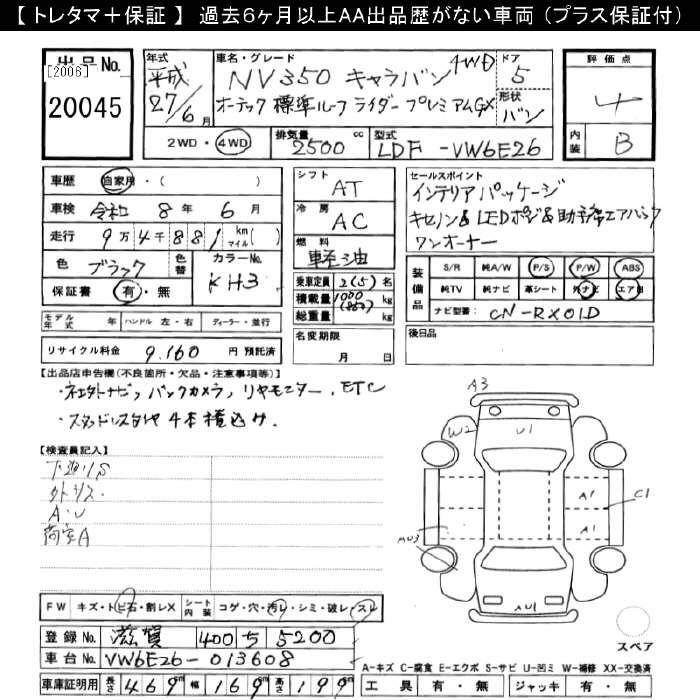 【 トレタマ＋保証 】 過去６ヶ月以上ＡＡ出品歴がない車両（プラス保証付）
出品No.
[2006]
20045
年式
平成
27/6月
車名・グレード
NV350 キャラバン 4WD
オーテック 標準ルーフ ライダー プレミアムGX
ドア
5
形状
バン
2WD・4WD
排気量
2500 cc
型式
LDF-VW6E26
評価点
4
内装
B
車歴 自家用・( )
車検 令和 8年 6月
走行 9万4千881 km マイル( )
色 ブラック 色替 カラーNo. KH3
保証書 有・無
シフト
AT
冷房
AC
燃料
軽油
乗車定員 2(5)名
積載量 1000(850)kg
総重量 kg
セールスポイント
インテリアパッケージ
キセノン&LEDポジ&助手席エアバック
ワンオーナー
装備品
S/R 純A/W P/S P/W ABS
純TV 純ナビ 革シート 外ナビ エア
ナビ型番: CN-RX01D
モデル年式 年 ハンドル 左・右 ディーラー・並行
リサイクル料金 9,160 円 預託済
名変期限
月 日
後日品
【出品店申告欄(不良箇所・欠品・注意事項等)】
・ネエタトナビ、バックカメラ、リヤモニター、ETC
・スタッドレスタイヤ 4本積込み.
【検査員記入】
下廻りS
外キズ.
A・U
荷室A
A3
W2
U1
A1
C1
A1
AU3
AU1
スペア
FW キズ・トビ石・割レX シート内装 コゲ・穴・汚レ・シミ・破レ・スレ
登録No. 滋賀 400 5 5200
車台No. VW6E26-013608
車庫証明用 長さ 469cm 幅 169cm 高さ 199cm
A-キズ C-腐食 E-エクボ S-サビ U-凹ミ W-補修 XX-交換済
工具 有・無 ジャッキ 有・無